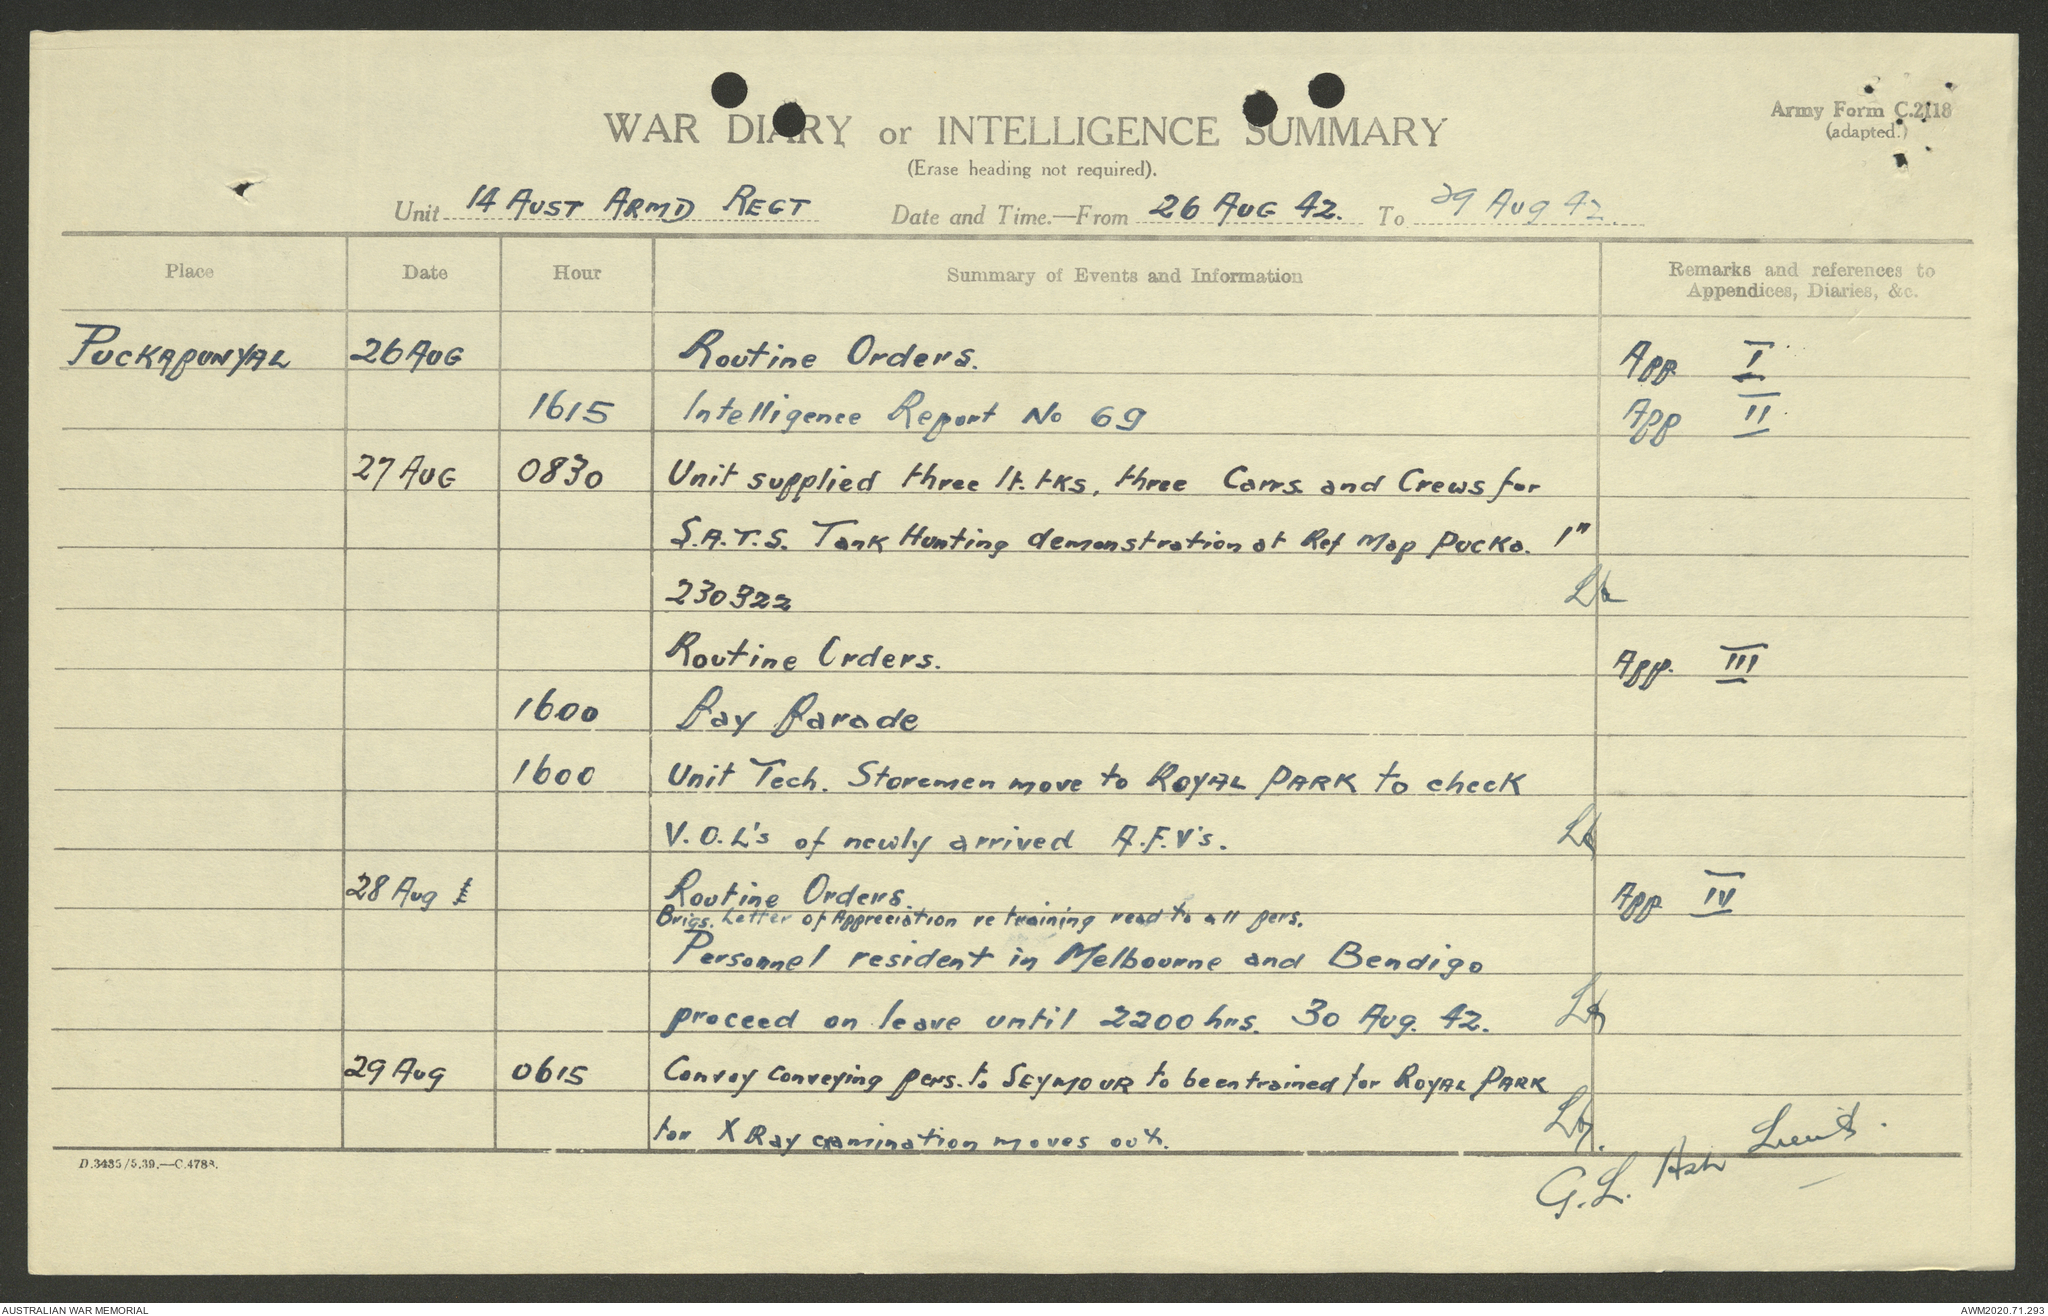 Army Form C.2118
(adapted.)
WAR DIARY or INTELLIGENCE SUMMARY
(Erase heading not required).
Unit 14 AUST ARMD REGT Date and Time.—From 26 AUG 42. To 29 Aug 42.
Place Date Hour Summary of Events and Information Remarks and references to
Appendices, Diaries, &c.
PUCKAPUNYAL 26 AUG Routine Orders. App I
1615 Intelligence Report No 69 App II
27 AUG 0830 Unit supplied three lt. tks, three Carrs and Crews for
S.A.T.S. Tank Hunting demonstration at Ref Map Pucka. 1"
230322
Routine Orders. App. III
1600 Pay Parade
1600 Unit Tech. Storemen move to ROYAL PARK to check
V.O.L's of newly arrived A.F.V's.
28 Aug Routine Orders. App IV
Brigs. Letter of Appreciation re training read to all pers.
Personnel resident in Melbourne and Bendigo
proceed on leave until 2200 hrs. 30 Aug. 42.
29 Aug 0615 Convoy conveying pers. to SEYMOUR to be entrained for ROYAL PARK
for X Ray examination moves out.
G.L. Ash Lieut.
D.3435/5.39.—C.4788.
AUSTRALIAN WAR MEMORIAL AWM2020.71.293